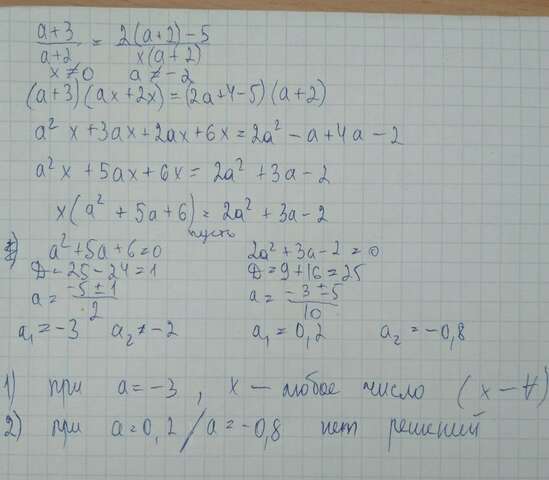 (a+3)/(a+2) = (2(a+2)-5)/(x(a+2))
x≠0 a≠-2
(a+3)(ax+2x)=(2a+4-5)(a+2)
a²x+3ax+2ax+6x=2a²-a+4a-2
a²x+5ax+6x=2a²+3a-2
x(a²+5a+6)=2a²+3a-2
пусть
a²+5a+6=0 2a²+3a-2=0
D=25-24=1 D=9+16=25
a=(-5±1)/2 a=(-3±5)/10
a₁=-3 a₂≠-2 a₁=0,2 a₂=-0,8
1) при a=-3, x - любое число (x-∀)
2) при a=0,2/a=-0,8 нет решений